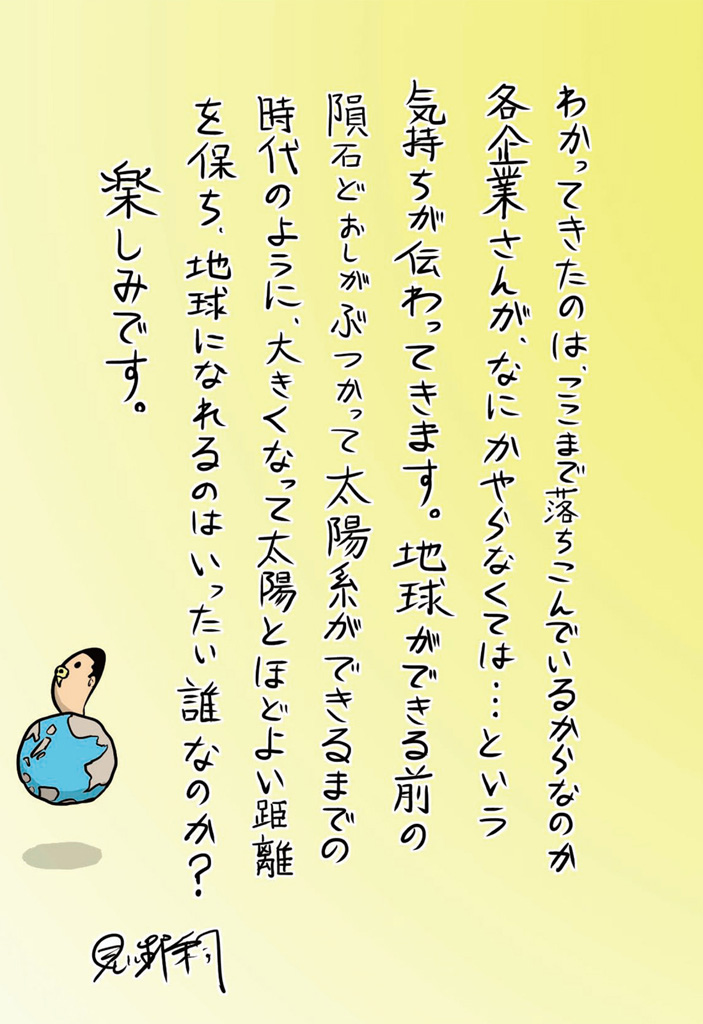 わかってきたのは、ここまで落ちこんでいるからなのか
各企業さんが、なにかやらなくては…という
気持ちが伝わってきます。地球ができる前の
隕石どおしがぶつかって太陽系ができるまでの
時代のように、大きくなって太陽とほどよい距離
を保ち、地球になれるのはいったい誰なのか？
楽しみです。